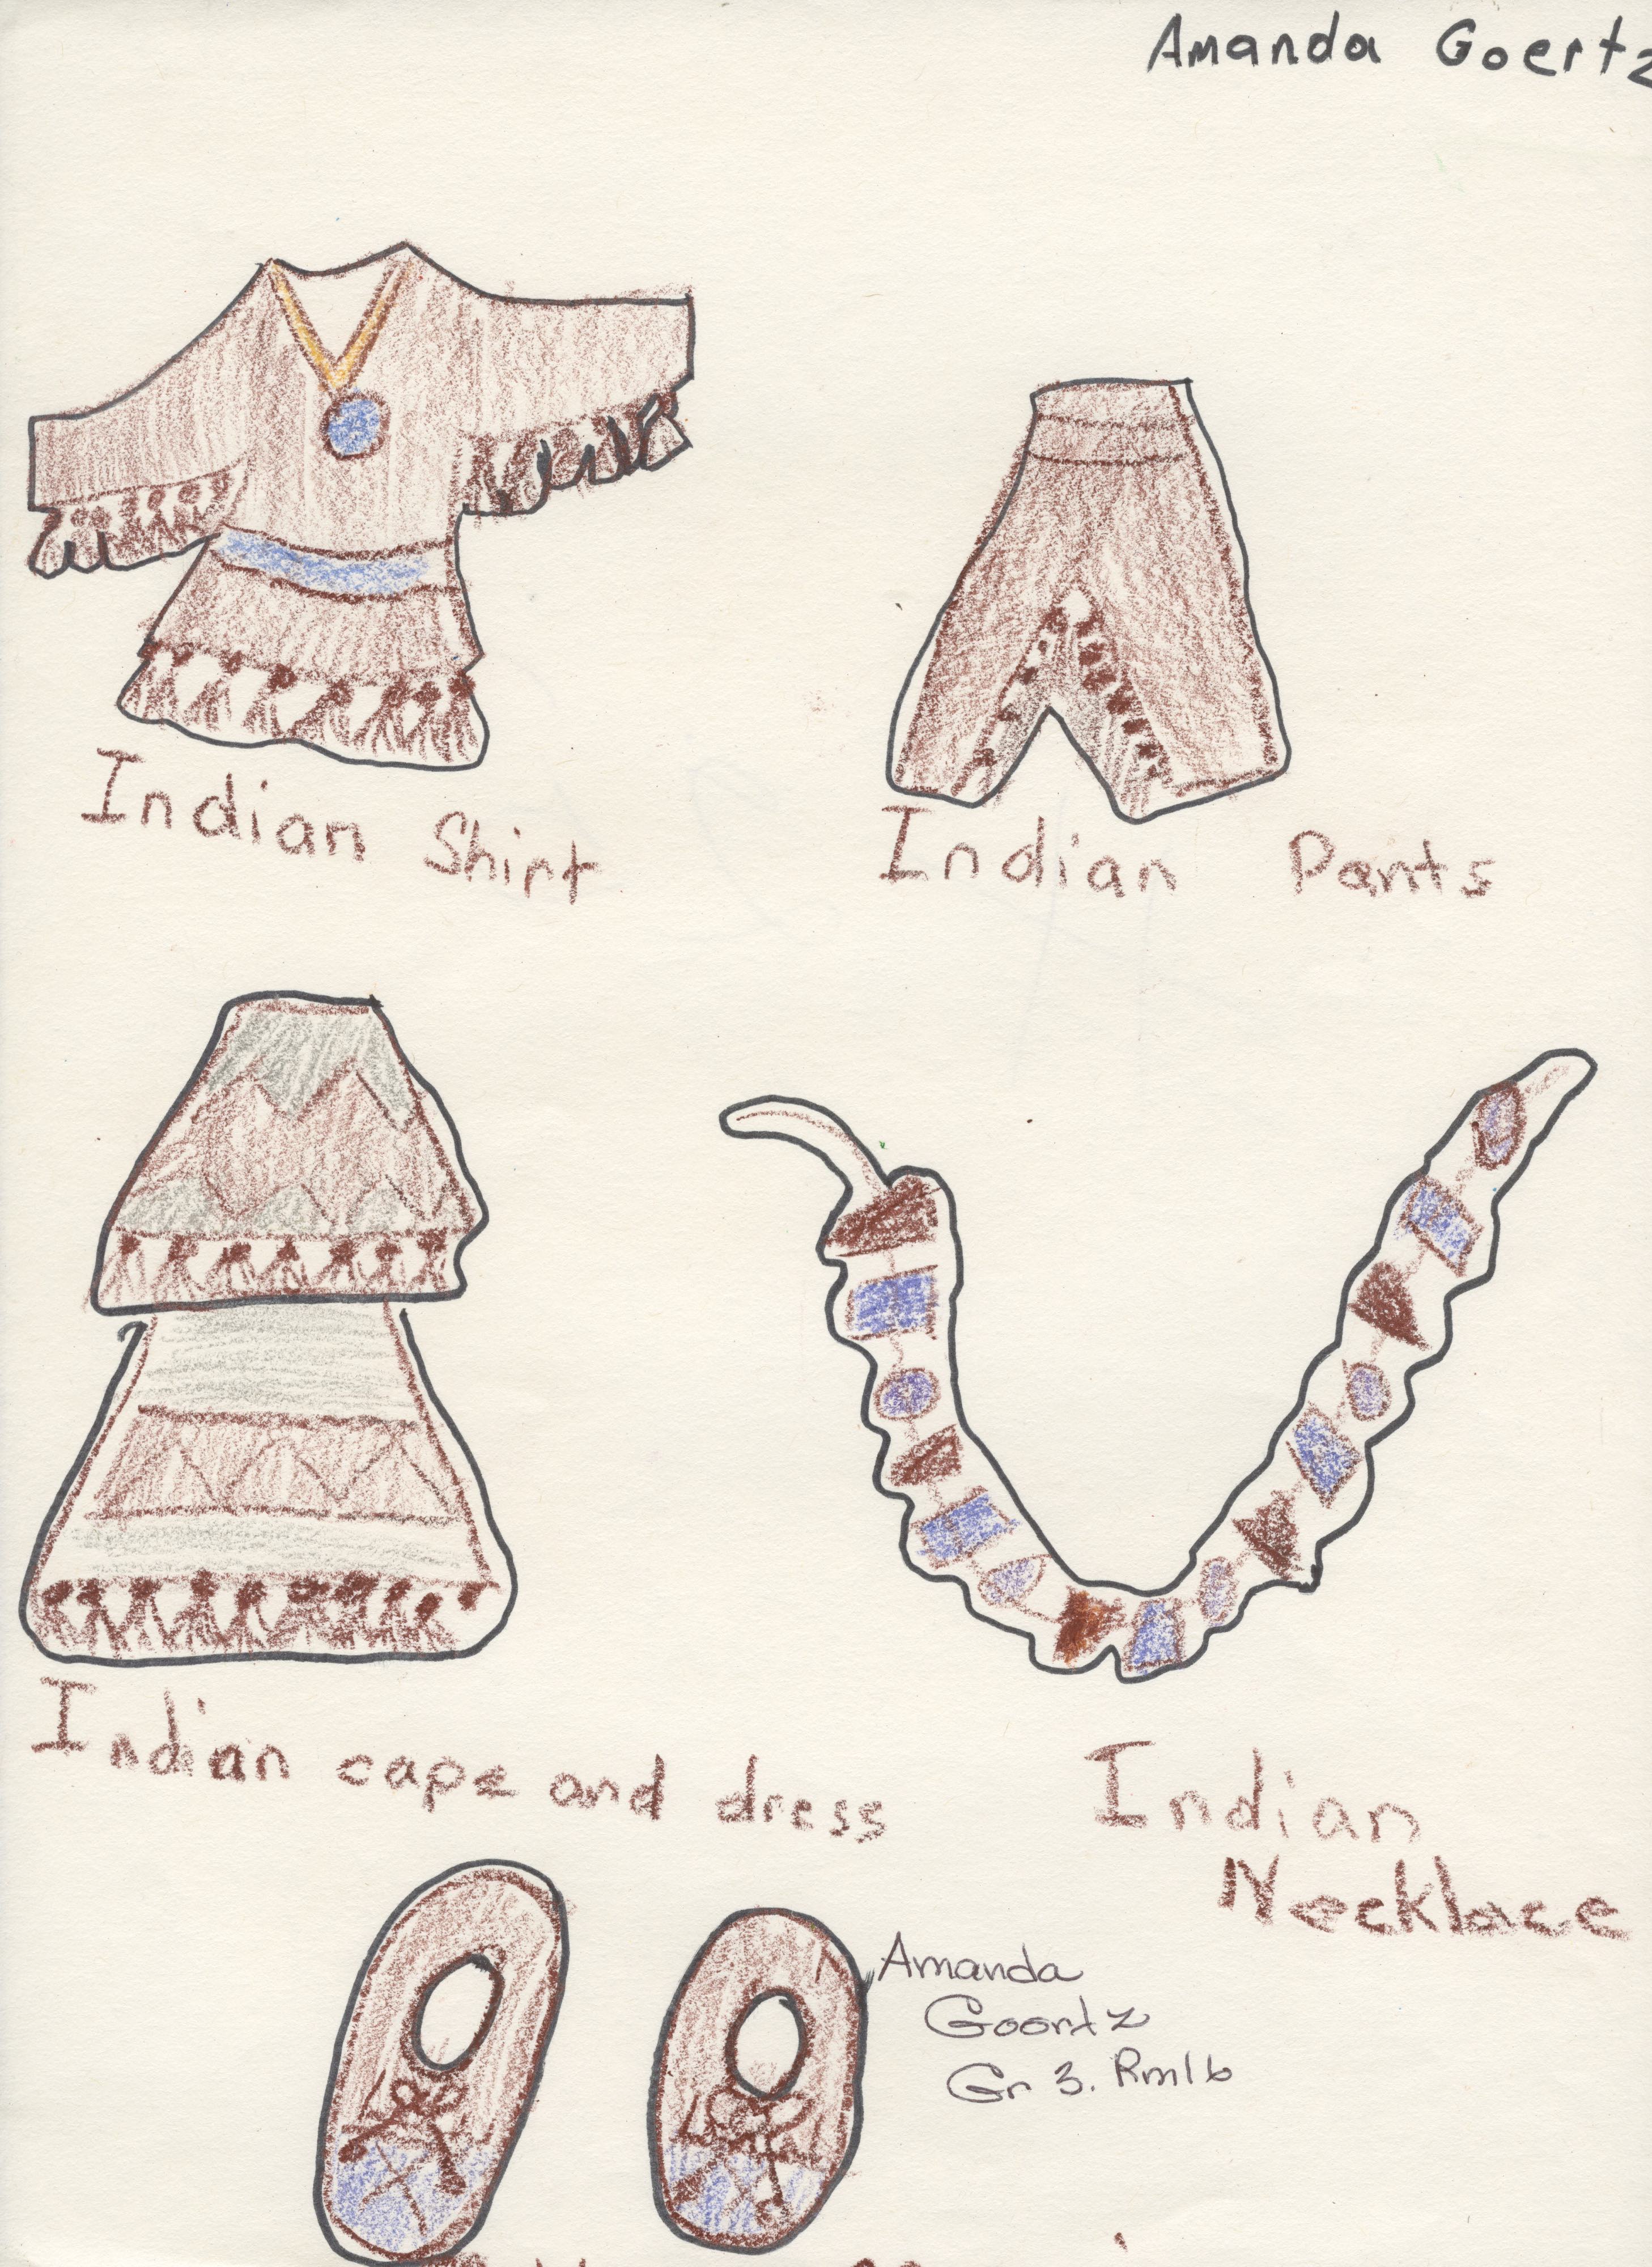 Amanda Goertz
Indian Shirt
Indian Pants
Indian cape and dress
Indian
Necklace
Amanda
Goertz
Gr 3. Rm16